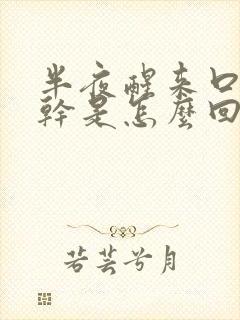 半夜醒来口
幹是怎麼回
若芸兮月